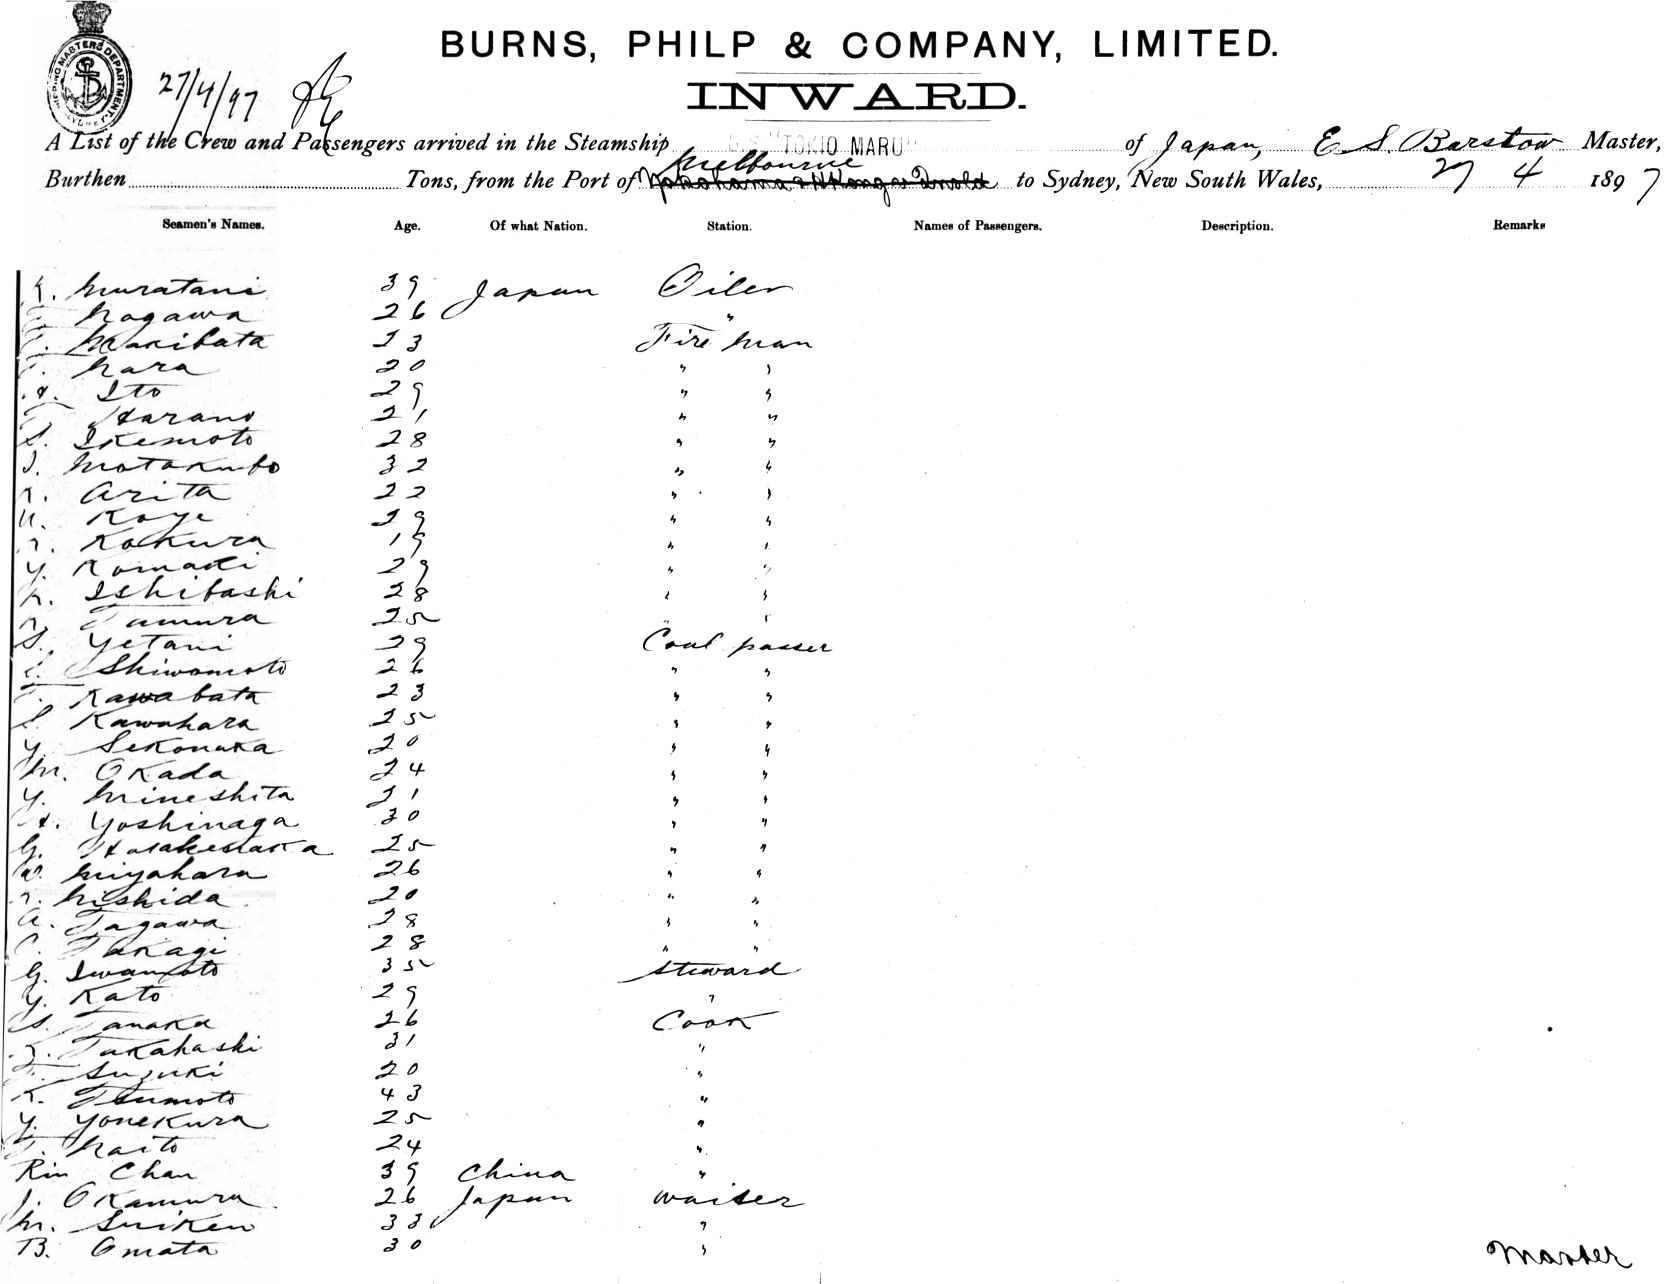 SHIPPING MASTERS DEPARTMENT SYDNEY
27/4/97
BURNS, PHILP & COMPANY, LIMITED.
INWARD.
A List of the Crew and Passengers arrived in the Steamship "TOKIO MARU" of Japan, E S. Barstow Master,
Melbourne
Burthen Tons, from the Port of to Sydney, New South Wales, 27 4 1897
Seamen's Names. Age. Of what Nation. Station. Names of Passengers. Description. Remarks
K. Muratani 39 Japan Oiler
Nogawa 26 "
Makibata 23 Fire Man
Nara 20 " "
Ito 29 " "
Harano 21 " "
S. Ikemoto 28 " "
I. Motokubo 32 " "
K. Arita 22 " "
U. Koye 29 " "
Kokura 19 " "
Y. Komaki 29 " "
Ishibashi 28 " "
Tamura 25 " "
S. Yetani 29 Coal passer
Shiwomoto 26 " "
T. Kawabata 23 " "
S. Kawahara 25 " "
Y. Sekonaka 20 " "
M. Okada 24 " "
Y. Mineshita 21 " "
H. Yoshinaga 30 " "
G. 25 " "
Miyahara 26 " "
Nishida 20 " "
A. Tagawa 28 " "
Takagi 28 " "
G. Iwamoto 35 Steward
Y. Kato 29 "
S. Tanaka 26 Cook
K. Takahashi 31 "
T. Suzuki 20 "
K. Tsumoto 43 "
Y. Yonekura 25 "
T. Naito 24 "
Rin Chan 39 China "
J. Okamura 26 Japan waiter
M. Suiken 33 "
B. Omata 30 "
Master